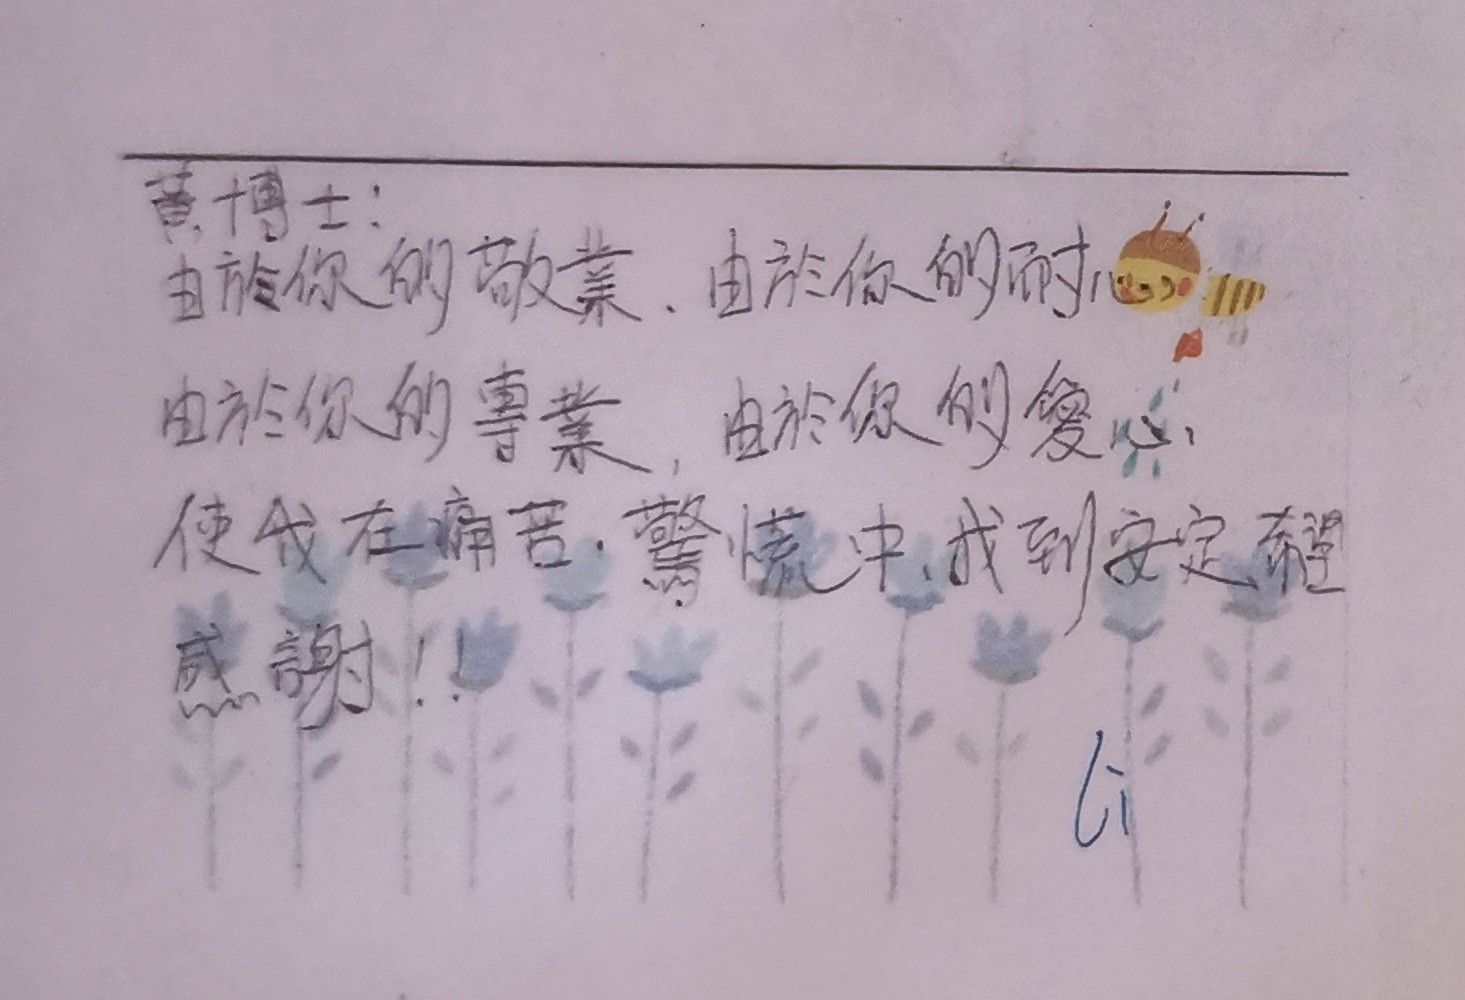 黃博士：
由於你的敬業、由於你的耐心
由於你的專業，由於你的愛心、
使我在痛苦、驚慌中、找到安定、希望
感謝！！
Li